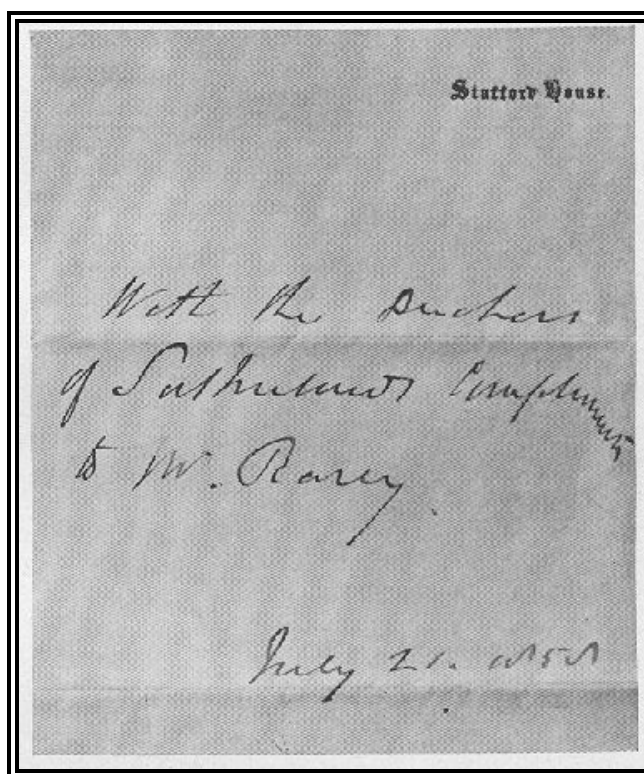 Stafford House.
With the Duchess
of Sutherland's Compliments
to Mr. Rarey.
July 21. 1858